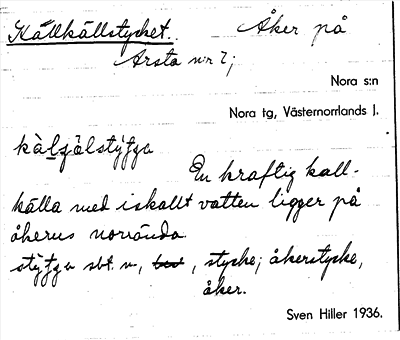 Kallkällstycket. Åker på
Årsta nr 7;
Nora s:n
Nora tg, Västernorrlands l.
En kraftig kall-
källa med iskallt vatten ligger på
åkerns norrända
sbt. n, best , stycke; åkerstycke,
åker.
Sven Hiller 1936.